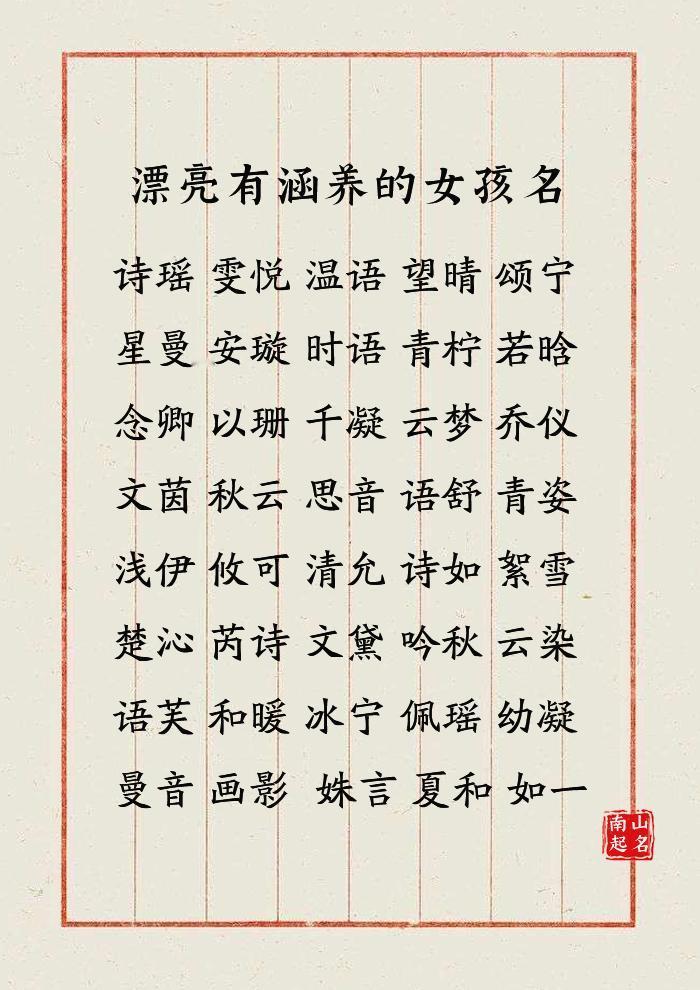 漂亮有涵养的女孩名
诗瑶 雯悦 温语 望晴 颂宁
星曼 安璇 时语 青柠 若晗
念卿 以珊 千凝 云梦 乔仪
文茵 秋云 思音 语舒 青姿
浅伊 攸可 清允 诗如 絮雪
楚沁 芮诗 文黛 吟秋 云染
语芙 和暖 冰宁 佩瑶 幼凝
曼音 画影 姝言 夏和 如一
南山
起名